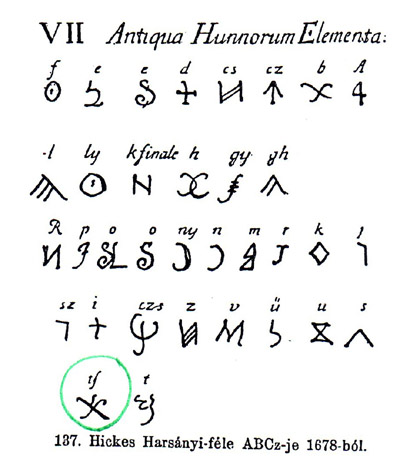 VII Antiqua Hunnorum Elementa:
f e e d cs cz b A
l ly kfinale h gy gh
R p o o ny n m r k j
sz i czs z v ű u s
tſ t
137. Hickes Harsányi-féle ABCz-je 1678-ból.